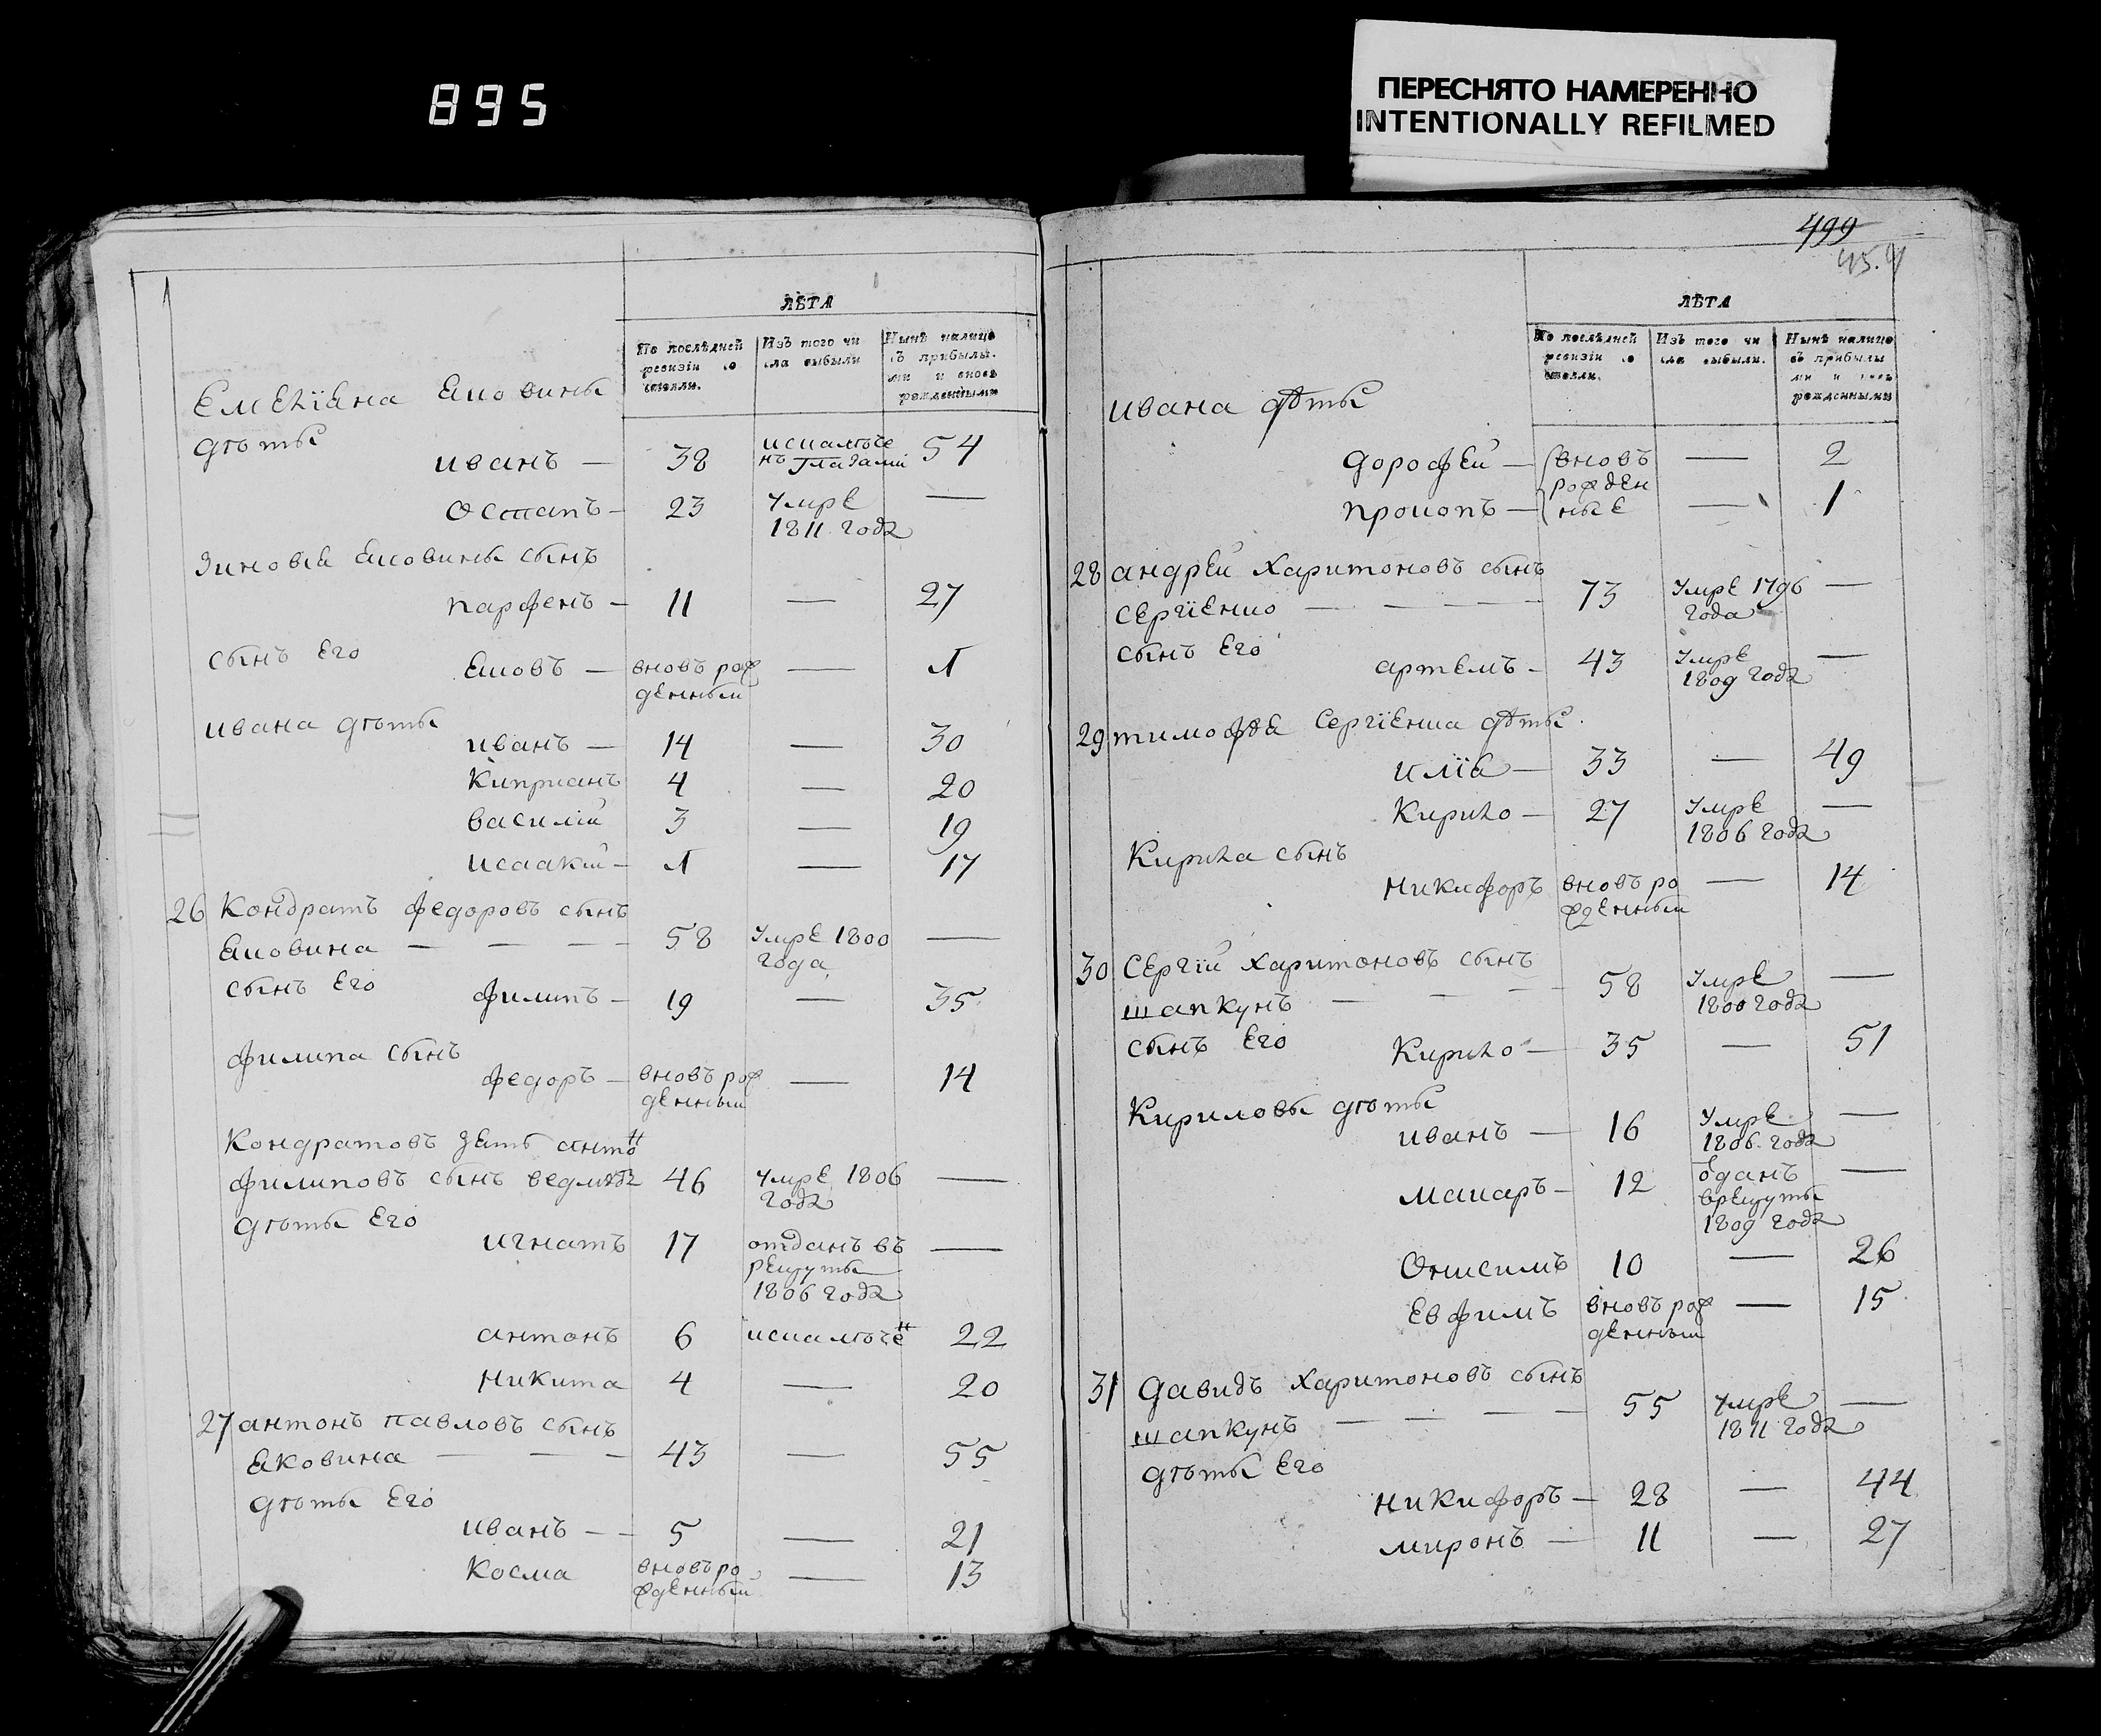 895
ПЕРЕСНЯТО НАМЕРЕННО
INTENTIONALLY REFILMED
ЛѢТА
По послѣдней ревизіи со стояли.
Изъ того чи сла выбыли
Нынѣ налицо съ прибылы. ми и вновь рожденными
Емелїана Яковины
дѣти
иванъ — 38 искалѣче нъ глазами 54
Остапъ — 23 умре 1811 года —
Зиновїя Яковины сынъ
парфенъ — 11 — 27
сынъ Его
Яковъ — вновь рож денный — 1
ивана дѣти
иванъ — 14 — 30
Киприанъ 4 — 20
василій 3 — 19
исаакій — 1 — 17
26 Кондратъ федоровъ сынъ
Яковина — — — 58 умре 1800 года —
сынъ Его
филипъ — 19 — 35
филипа сынъ
федоръ — вновь рож денный — 14
Кондратовъ зять антон
филиповъ сынъ 46 умре 1806 года —
дѣти Его
игнатъ 17 отданъ въ рекруты 1806 года —
антонъ 6 искалѣчен 22
Никита 4 — 20
27 антонъ павловъ сынъ
Яковина — — — 43 — 55
дѣти Его
иванъ — — 5 — 21
Косма вновь ро жденный — 13
499
ЛѢТА
По послѣдней ревизіи со стояли.
Изъ того чи сла выбыли.
Нынѣ налицо съ прибылы ми и вновь рожденными
ивана дѣти
дорофей — вновь рожден ные — 2
прокопъ — — 1
28 андрей Харитоновъ сынъ
Сергїенко — — — 73 умре 1796 года —
сынъ Его
артемъ — 43 умре 1809 года —
29 тимофѣя Сергїенка дѣти
илїя — 33 — 49
Кирило — 27 умре 1806 года —
Кирила сынъ
Никифоръ вновь ро жденный — 14
30 Сергїй Харитоновъ сынъ
шапкунъ — — — 58 умре 1800 года —
сынъ Его
Кирило — 35 — 51
Кириловы дѣти
иванъ — 16 умре 1806 года —
макаръ — 12 оданъ врекруты 1809 года —
Онисимъ 10 — 26
Евфимъ вновь рож денный — 15
31 Давидъ Харитоновъ сынъ
шапкунъ — — — — 55 умре 1811 года —
дѣти Его
никифоръ — 28 — 44
миронъ — 11 — 27